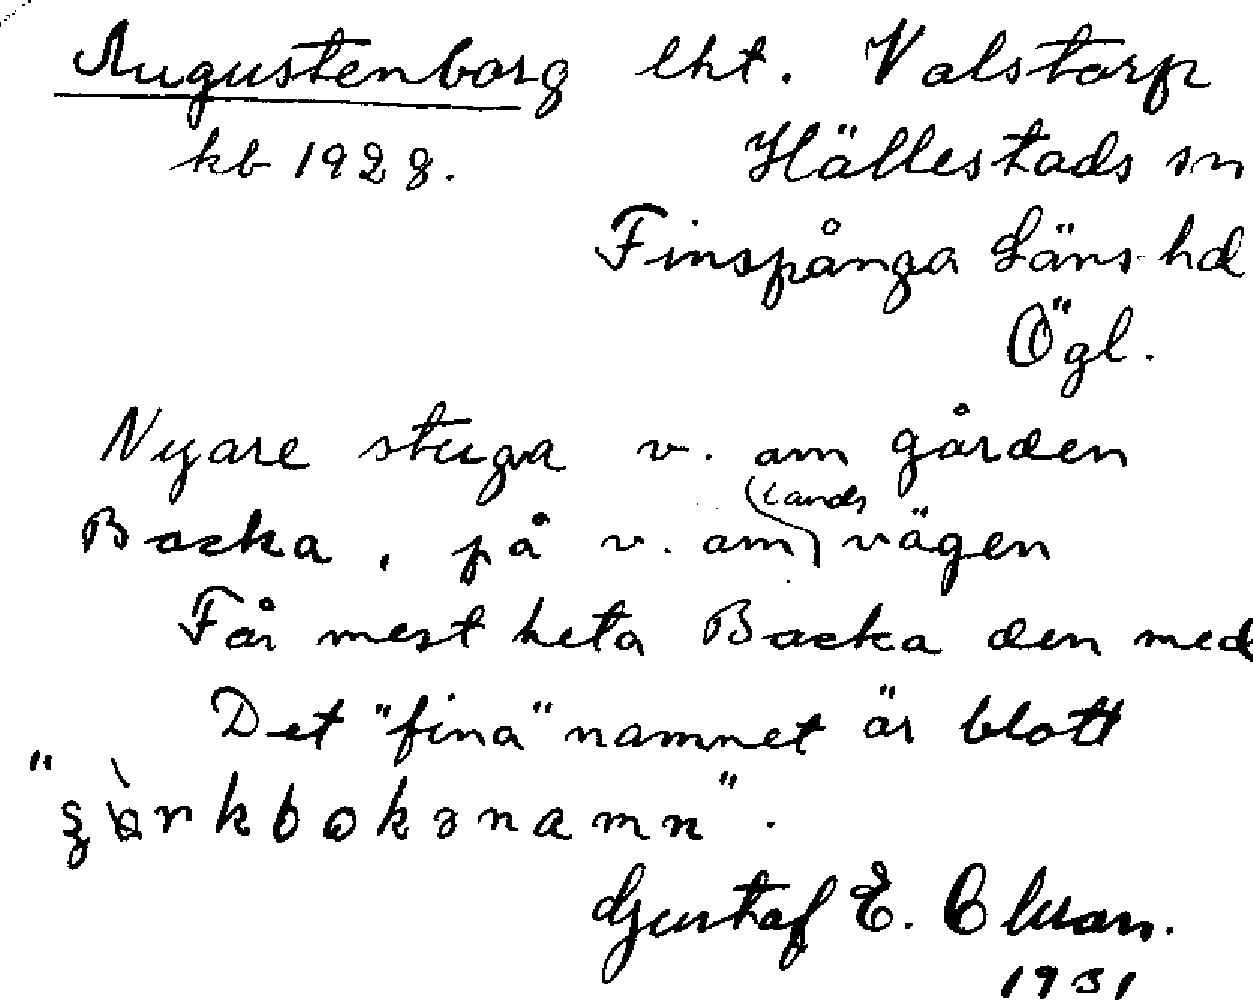 Augustenborg lht. Valstorp
kb 1928. Hällestads sn
Finspånga Läns hd
Ögl.
Nyare stuga v. om gården
Backa, på v. om landsvägen
Får mest heta Backa den med
Det "fina" namnet är blott
Gustaf E. Clvan.
1931